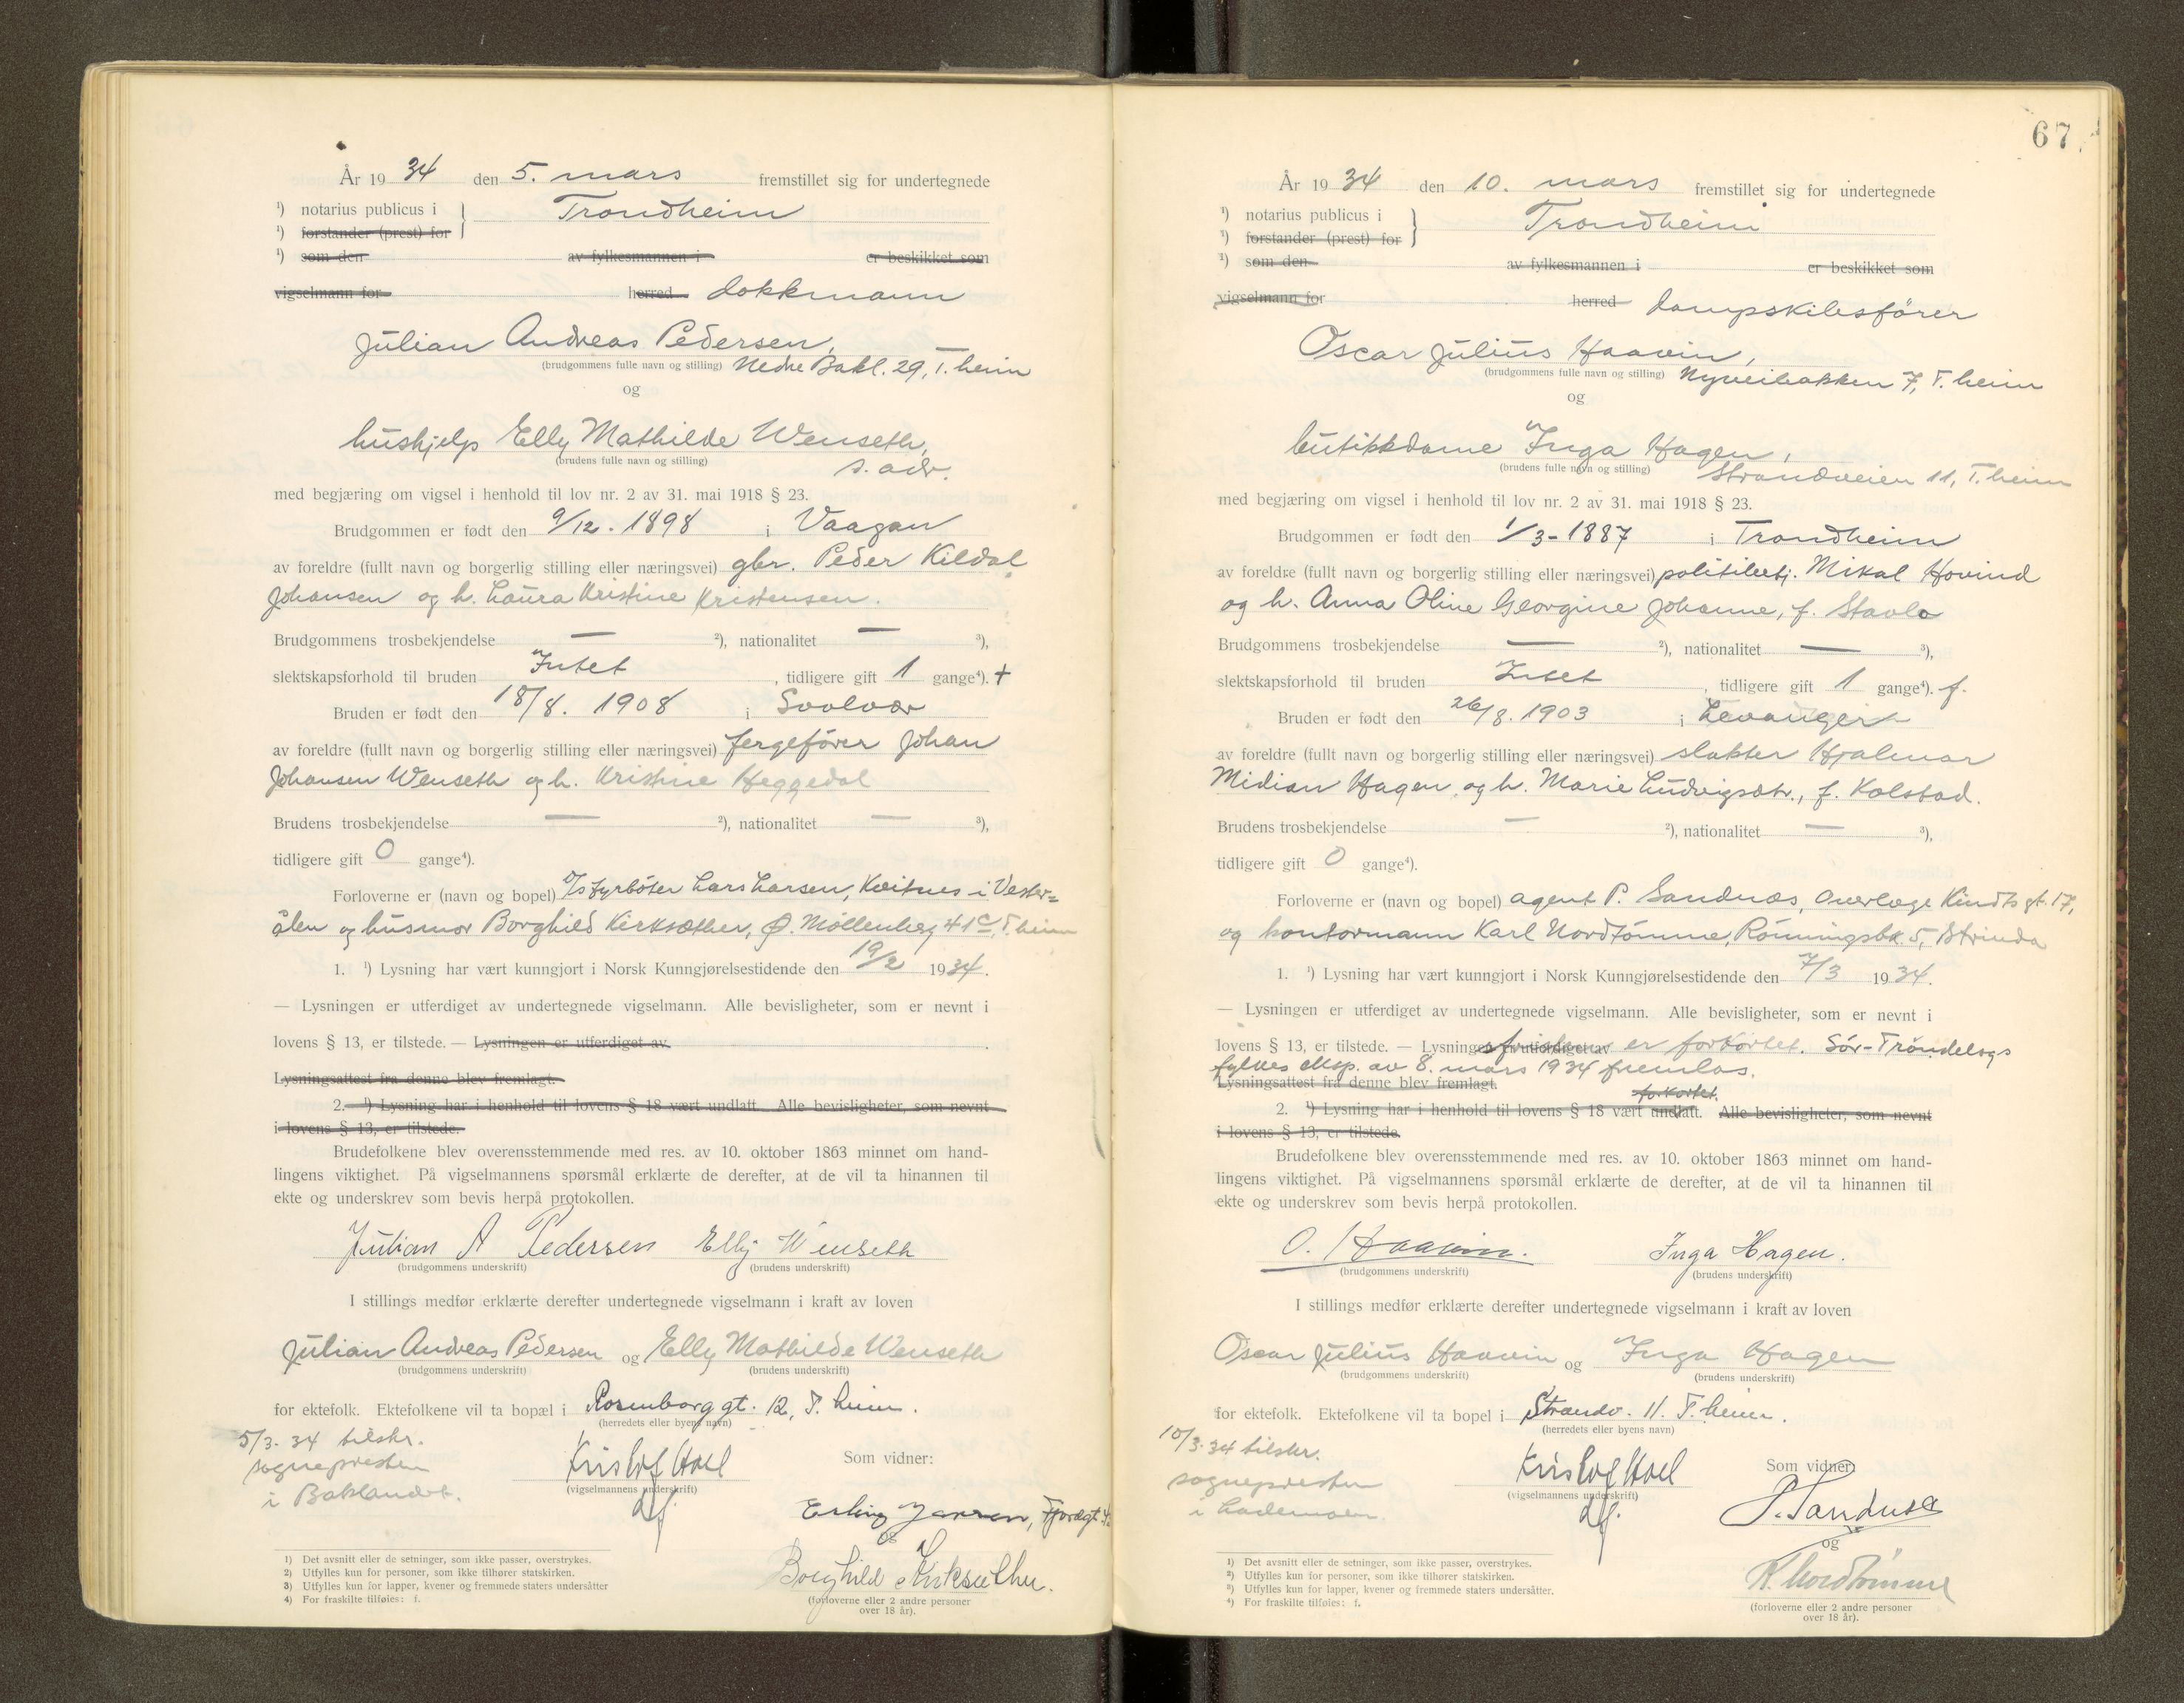 År 19 34 den 5. mars fremstillet sig for undertegnede
¹) notarius publicus i } Trondheim
¹) forstander (prest) for
¹) som den av fylkesmannen i er beskikket som
vigselmann for herred dokkmann
Julian Andreas Pedersen,
(brudgommens fulle navn og stilling) Nedre Bakl. 29, T.heim
og
hushjelp Elly Mathilde Wenseth,
(brudens fulle navn og stilling) s. adr.
med begjæring om vigsel i henhold til lov nr. 2 av 31. mai 1918 § 23.
Brudgommen er født den 9/12. 1898 i Vaagan
av foreldre (fullt navn og borgerlig stilling eller næringsvei) gbr. Peder Kildal
Johansen og h. Laura Kristine Kristensen.
Brudgommens trosbekjendelse — ²), nationalitet — ³),
slektskapsforhold til bruden Intet, tidligere gift 1 gange⁴). +
Bruden er født den 18/8. 1908 i Svolvær
av foreldre (fullt navn og borgerlig stilling eller næringsvei) fergefører Johan
Johansen Wenseth og h. Kristine Heggedal
Brudens trosbekjendelse — ²), nationalitet — ³),
tidligere gift 0 gange⁴).
Forloverne er (navn og bopel) fyrbøter Lars Larsen, Kvitnes i Vester=
ålen og husmor Borghild Kirksæther, Ø. Møllenberg 41c, T.heim
1. ¹) Lysning har vært kunngjort i Norsk Kunngjørelsestidende den 19/2 1934.
— Lysningen er utferdiget av undertegnede vigselmann. Alle bevisligheter, som er nevnt i
lovens § 13, er tilstede. — Lysningen er utferdiget av .
Lysningsattest fra denne blev fremlagt.
2. ¹) Lysning har i henhold til lovens § 18 vært undlatt. Alle bevisligheter, som nevnt
i lovens § 13, er tilstede.
Brudefolkene blev overensstemmende med res. av 10. oktober 1863 minnet om hand-
lingens viktighet. På vigselmannens spørsmål erklærte de derefter, at de vil ta hinannen til
ekte og underskrev som bevis herpå protokollen.
Julian A Pedersen Elly Wenseth
(brudgommens underskrift) (brudens underskrift)
I stillings medfør erklærte derefter undertegnede vigselmann i kraft av loven
Julian Andreas Pedersen og Elly Mathilde Wenseth
(brudgommens underskrift) (brudens underskrift)
for ektefolk. Ektefolkene vil ta bopæl i Rosenborg gt. 12, T.heim.
(herredets eller byens navn)
5/3. 34 tilskr.
sognepresten
i Baklandet.
Kristof Hoel
(vigselmannens underskrift)
Som vidner:
Erling Jensen, Fjordgt.
og
Borghild Kirksæther.
(forloverne eller 2 andre personer
over 18 år).
1) Det avsnitt eller de setninger, som ikke passer, overstrykes.
2) Utfylles kun for personer, som ikke tilhører statskirken.
3) Utfylles kun for lapper, kvener og fremmede staters undersåtter
4) For fraskilte tilføies: f.
67
År 19 34 den 10. mars fremstillet sig for undertegnede
¹) notarius publicus i } Trondheim
¹) forstander (prest) for
¹) som den av fylkesmannen i er beskikket som
vigselmann for herred dampskibsfører
Oscar Julius Haavin,
(brudgommens fulle navn og stilling) Nyveibakken 7, T.heim
og
butikkdame Inga Hagen,
(brudens fulle navn og stilling) Strandveien 11, T.heim
med begjæring om vigsel i henhold til lov nr. 2 av 31. mai 1918 § 23.
Brudgommen er født den 1/3-1887 i Trondheim
av foreldre (fullt navn og borgerlig stilling eller næringsvei) politibetj. Mikal Hovind
og h. Anna Oline Georgine Johanne, f. Stavlo
Brudgommens trosbekjendelse — ²), nationalitet — ³),
slektskapsforhold til bruden Intet, tidligere gift 1 gange⁴). f.
Bruden er født den 26/8. 1903 i Levanger
av foreldre (fullt navn og borgerlig stilling eller næringsvei) slakter Hjalmar
Midian Hagen og h. Marie Ludvigsdtr., f. Kolstad.
Brudens trosbekjendelse — ²), nationalitet — ³),
tidligere gift 0 gange⁴).
Forloverne er (navn og bopel) agent P. Sandnæs, Overlege Kindts gt. 17,
og kontormann Karl Nordtømme, Rønningsbk. 5, Strinda
1. ¹) Lysning har vært kunngjort i Norsk Kunngjørelsestidende den 7/3 1934.
— Lysningen er utferdiget av undertegnede vigselmann. Alle bevisligheter, som er nevnt i
lovens § 13, er tilstede. — Lysningsfristen er forkortet. Sør-Trøndelags
fylkes eksp. av 8. mars 1934 fremlas.
Lysningsattest fra denne blev fremlagt.
forkortet.
2. ¹) Lysning har i henhold til lovens § 18 vært undlatt. Alle bevisligheter, som nevnt
i lovens § 13, er tilstede.
Brudefolkene blev overensstemmende med res. av 10. oktober 1863 minnet om hand-
lingens viktighet. På vigselmannens spørsmål erklærte de derefter, at de vil ta hinannen til
ekte og underskrev som bevis herpå protokollen.
O. Haavin. Inga Hagen.
(brudgommens underskrift) (brudens underskrift)
I stillings medfør erklærte derefter undertegnede vigselmann i kraft av loven
Oscar Julius Haavin og Inga Hagen
(brudgommens underskrift) (brudens underskrift)
for ektefolk. Ektefolkene vil ta bopel i Strandv. 11. T.heim.
(herredets eller byens navn)
10/3-34 tilskr.
sognepresten
i Lademoen.
Kristof Hoel
(vigselmannens underskrift)
Som vidner:
P. Sandnæs
og
K. Nordtømme
(forloverne eller 2 andre personer
over 18 år).
¹) Det avsnitt eller de setninger, som ikke passer, overstrykes.
²) Utfylles kun for personer, som ikke tilhører statskirken.
³) Utfylles kun for lapper, kvener og fremmede staters undersåtter.
⁴) For fraskilte tilføies: f.